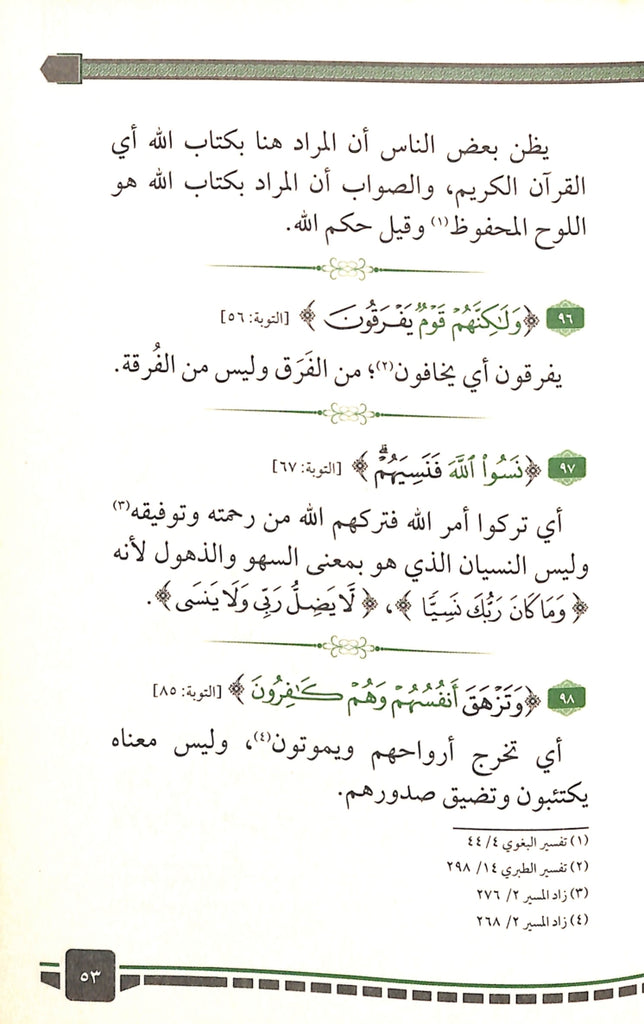 يظن بعض الناس أن المراد هنا بكتاب الله أي
القرآن الكريم، والصواب أن المراد بكتاب الله هو
اللوح المحفوظ(١) وقيل حكم الله.
٩٦ ﴿وَلَٰكِنَّهُمْ قَوْمٌ يَفْرَقُونَ﴾ [التوبة: ٥٦]
يفرقون أي يخافون(٢)؛ من الفَرَق وليس من الفُرقة.
٩٧ ﴿نَسُوا۟ ٱللَّهَ فَنَسِيَهُمْ ۗ﴾ [التوبة: ٦٧]
أي تركوا أمر الله فتركهم الله من رحمته وتوفيقه(٣)
وليس النسيان الذي هو بمعنى السهو والذهول لأنه
﴿وَمَا كَانَ رَبُّكَ نَسِيًّا﴾، ﴿لَّا يَضِلُّ رَبِّى وَلَا يَنسَى﴾.
٩٨ ﴿وَتَزْهَقَ أَنفُسُهُمْ وَهُمْ كَٰفِرُونَ﴾ [التوبة: ٨٥]
أي تخرج أرواحهم ويموتون(٤)، وليس معناه
يكتئبون وتضيق صدورهم.
(١) تفسير البغوي ٤/ ٤٤
(٢) تفسير الطبري ١٤/ ٢٩٨
(٣) زاد المسير ٢/ ٢٧٦
(٤) زاد المسير ٢/ ٢٦٨
٥٣